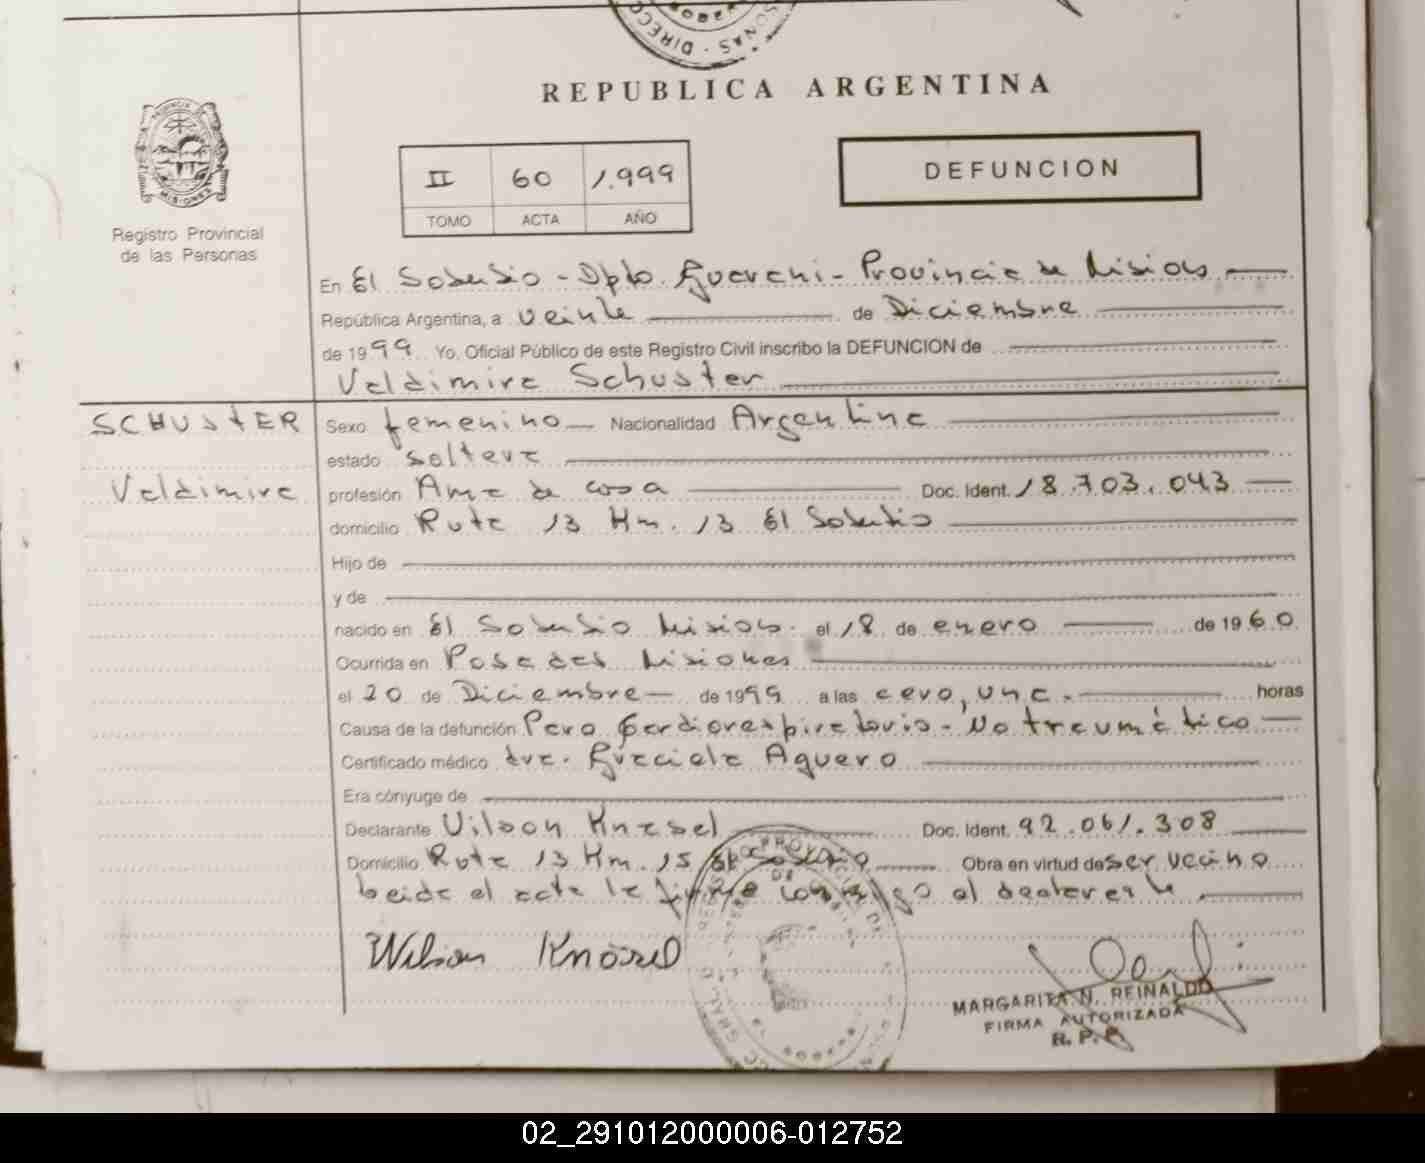 DIRECC
SONAS
REPUBLICA ARGENTINA
PROVINCIA
MISIONES
Registro Provincial
de las Personas
II 60 1.999
TOMO ACTA AÑO
DEFUNCION
En El Soberbio - Dpto. Guarani - Provincia de Misiones
República Argentina, a veinte de Diciembre
de 1999 Yo, Oficial Público de este Registro Civil inscribo la DEFUNCION de
Valdimira Schuster
SCHUSTER
Valdimira
Sexo femenino Nacionalidad Argentina
estado soltera
profesión Ama de casa Doc. Ident. 18.703.043
domicilio Ruta 13 Km. 13 El Soberbio
Hijo de
y de
nacido en El Soberbio Misiones. el 18 de enero de 1960
Ocurrida en Posadas Misiones
el 20 de Diciembre de 1999 a las cero, una. horas
Causa de la defunción Paro Cardiorespiratorio - No traumático
Certificado médico dra. Graciela Aguero
Era cónyuge de
Declarante Vilson Knasel Doc. Ident. 92.061.308
Domicilio Ruta 13 Km. 15 El Soberbio Obra en virtud de ser vecino
leida el acta la firma conmigo el declarante
Wilson Knösel
MARGARITA N. REINALDO
FIRMA AUTORIZADA
R. P. P.
02_291012000006-012752